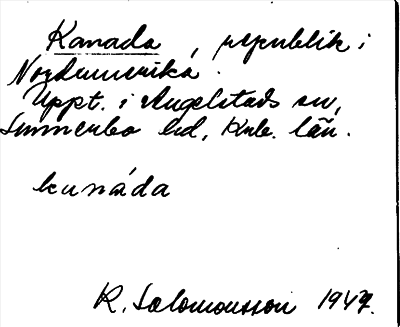 Kanada, republik i
Nordamerika.
Uppt. i Angelstads sn,
Sunnerbo hd, Krb. län.
kanáda
R. Salomonsson 1947.